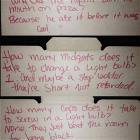 mouth on pizza?
Because he ate it before it was
cool.
How many midgets does it
take to change a light bulb?
1. And maybe a step ladder
They're Short not retarded!
How many Cops does it take
to screw in a light bulb?
None, They just beat the room